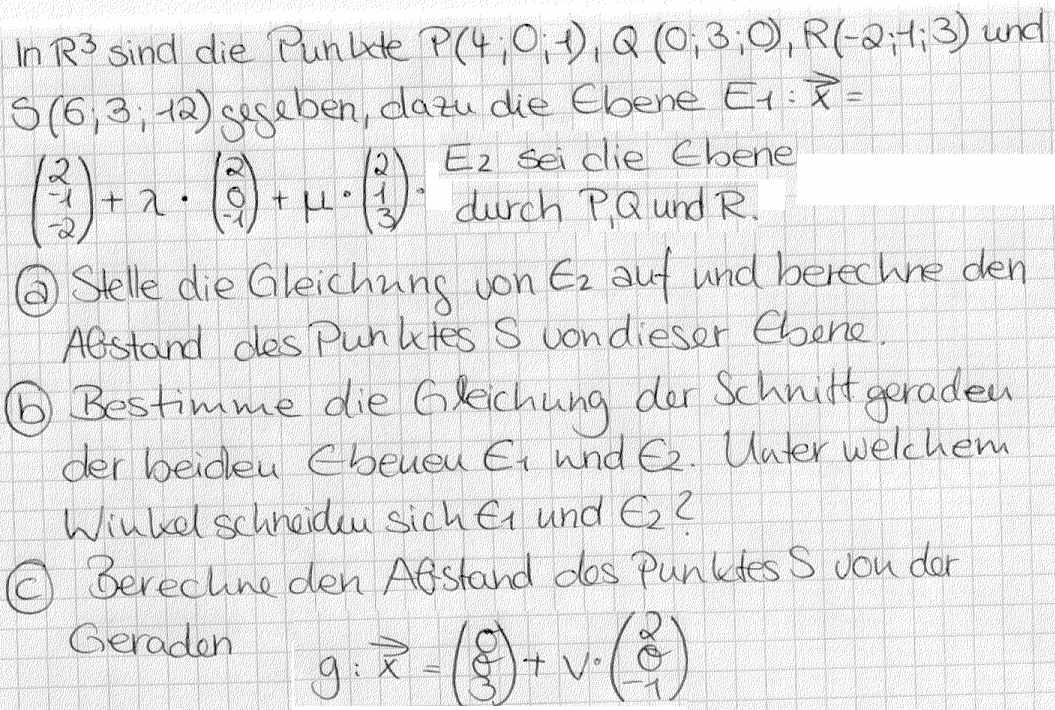 In R³ sind die Punkte P(4;0;1), Q(0;3;0), R(-2;1;3) und
S(6;3;12) gegeben, dazu die Ebene E1: x⃗ =
(2 -1 -2) + λ · (2 0 -1) + μ · (2 1 3). E2 sei die Ebene
durch P,Q und R.
ⓐ Stelle die Gleichung von E2 auf und berechne den
Abstand des Punktes S von dieser Ebene.
ⓑ Bestimme die Gleichung der Schnittgeraden
der beiden Ebenen E1 und E2. Unter welchem
Winkel schneiden sich E1 und E2?
ⓒ Berechne den Abstand des Punktes S von der
Geraden g: x⃗ = (0 0 3) + v · (2 0 -1)